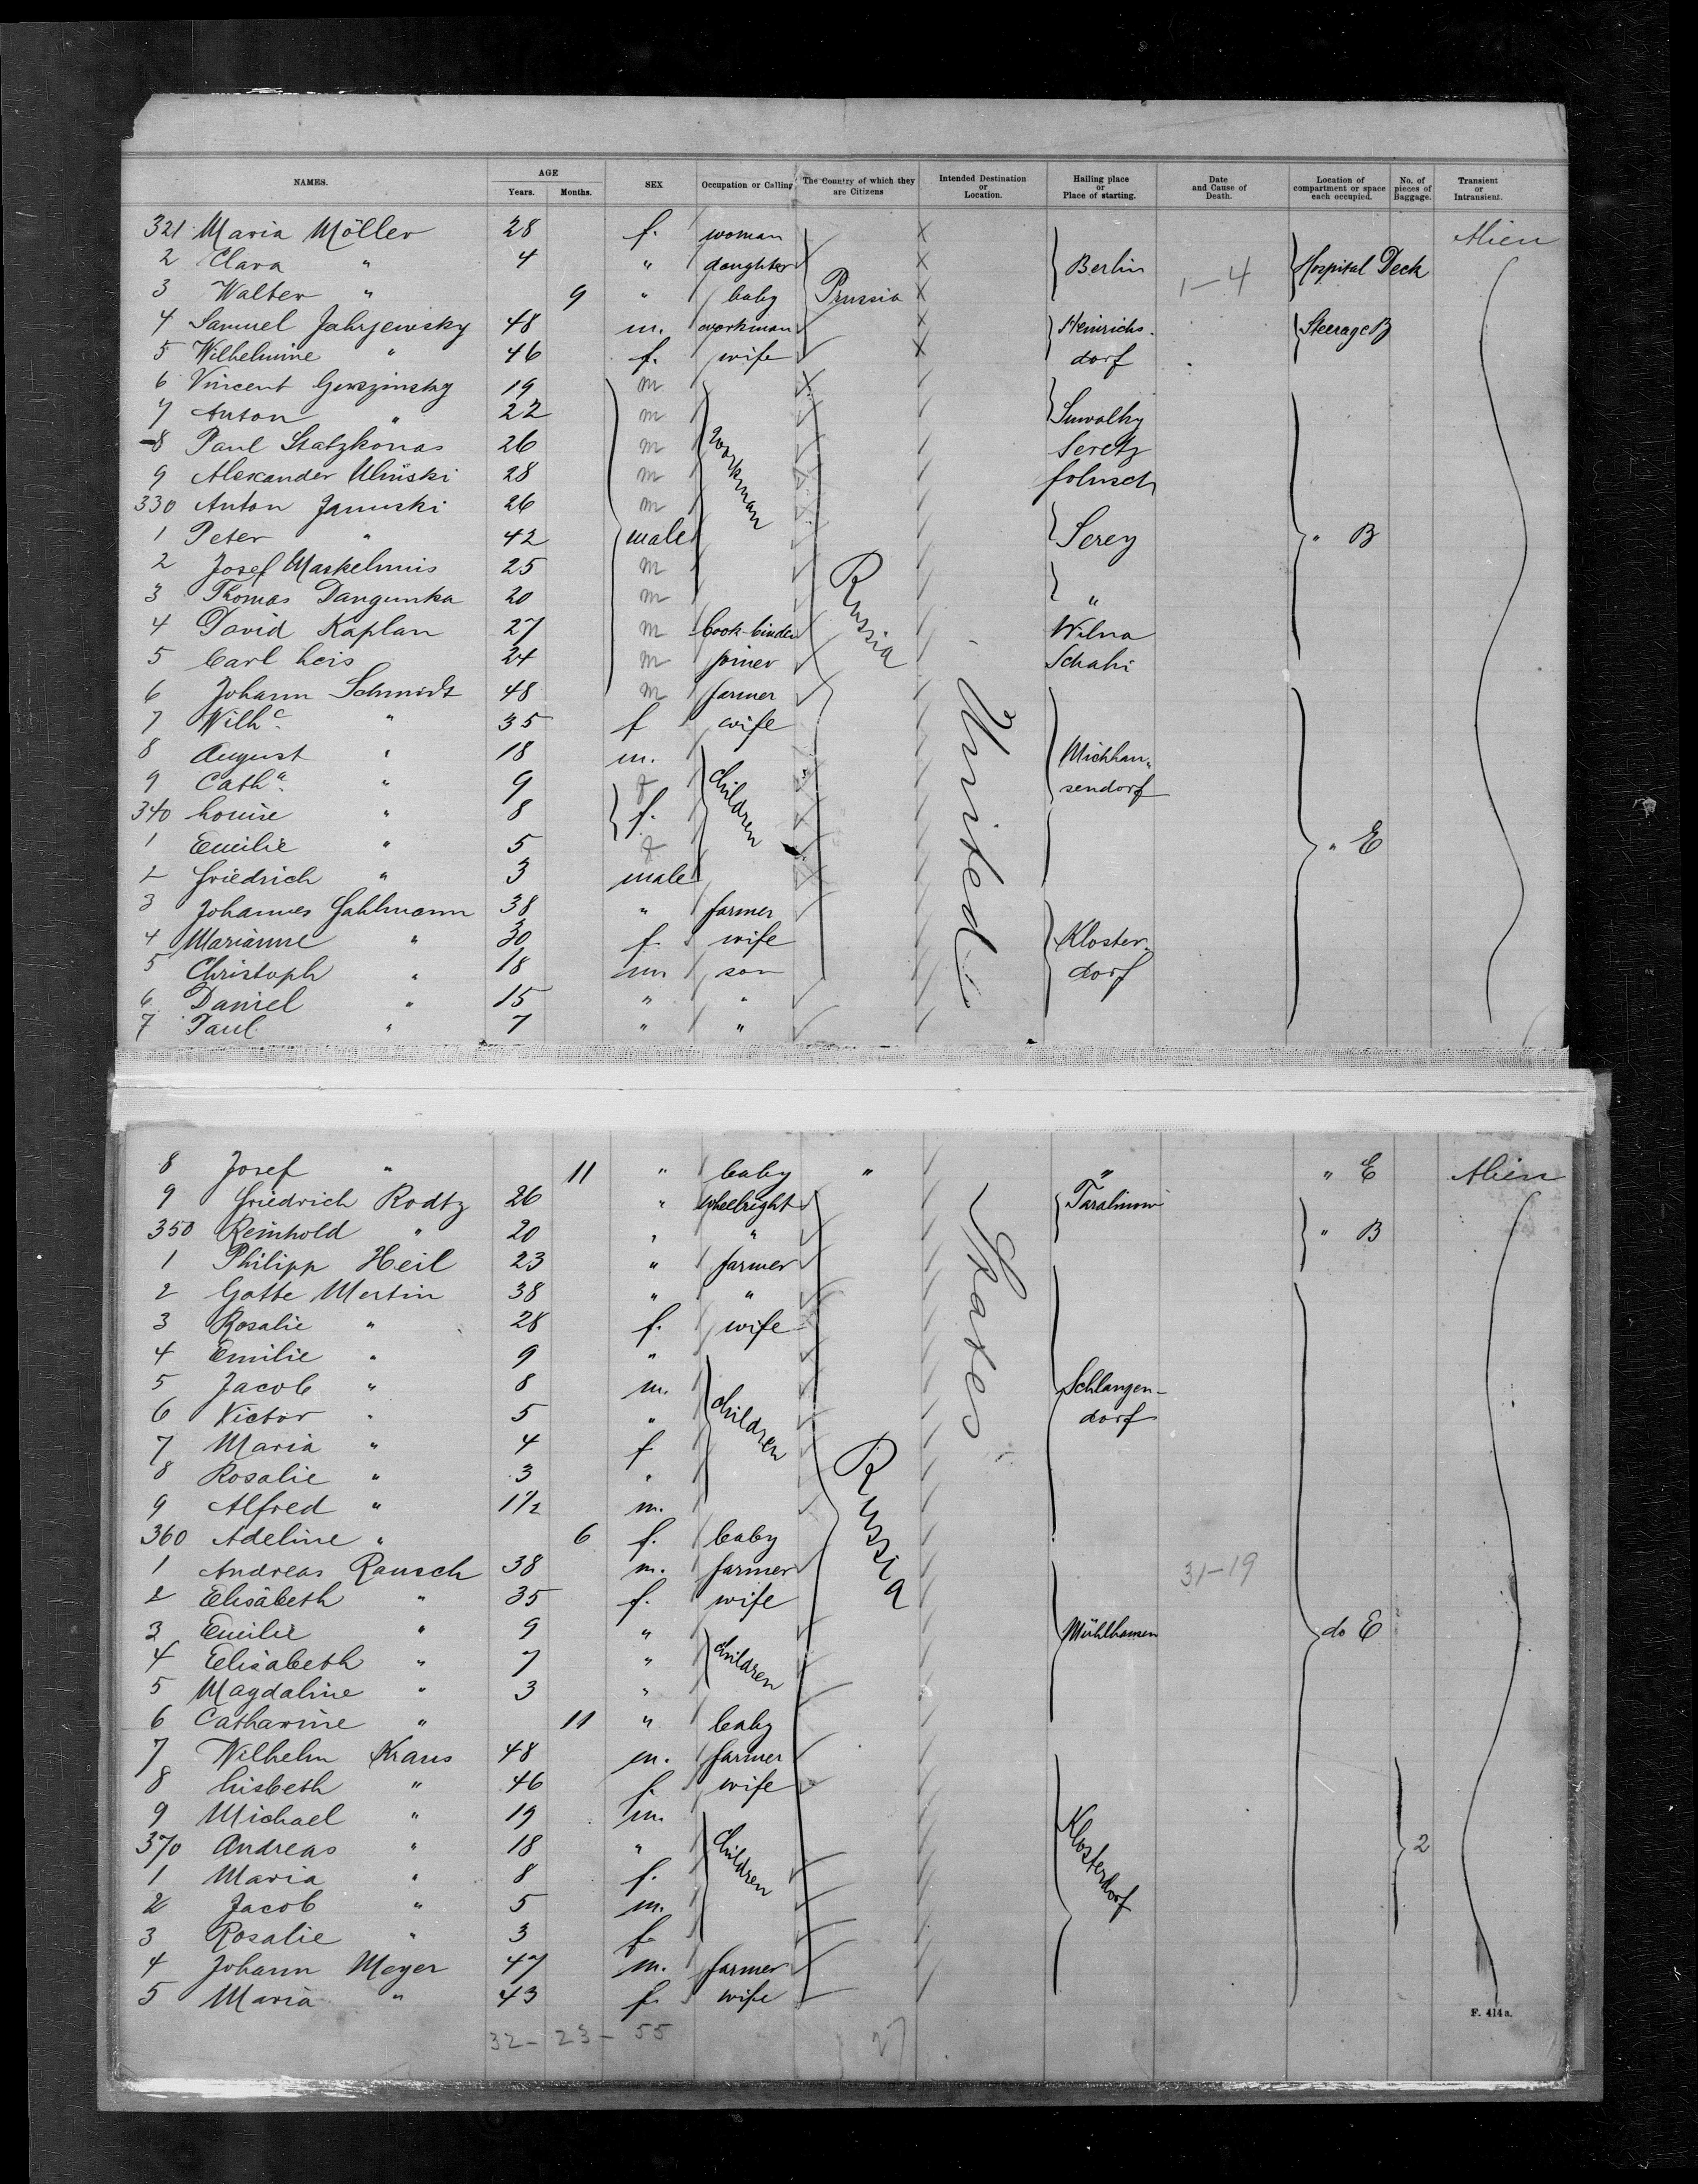 NAMES. AGE Years. Months. SEX Occupation or Calling The Country of which they are Citizens Intended Destination or Location. Hailing place or Place of starting. Date and Cause of Death. Location of compartment or space each occupied. No. of pieces of Baggage. Transient or Intransient.
321 Maria Möller 28 f. woman Alien
2 Clara " 4 " daughter Berlin Hospital Deck
3 Walter " 9 " baby Prussia 1-4
4 Samuel Jahrjewsky 48 m. workman Heinrichs- Steerage B
5 Wilhelmine " 46 f. wife dorf
6 Vincent Gerszinsky 19 m
7 Anton " 22 m Suwalky
8 Paul Statzkonas 26 m workman Seretz
9 Alexander Ulinski 28 m folusch
330 Anton Januski 26 m
1 Peter " 42 male Serey " B
2 Josef Maskelunis 25 m Russia
3 Thomas Dangunka 20 m "
4 David Kaplan 27 m book-binder Wilna
5 Carl Leis 24 m joiner Schaki
6 Johann Schmidt 48 m farmer United
7 Wilhe " 35 f wife
8 August " 18 m. Michhau-
9 Catha " 9 f children sendorf
340 Louise " 8 f.
1 Emilie " 5 f " E
2 Friedrich " 3 male
3 Johannes Fahlmann 38 " farmer
4 Marianne " 30 f. wife Kloster-
5 Christoph " 18 m son dorf
6 Daniel " 15 " "
7 Paul " 7 " "
8 Josef " 11 " baby " " " E Alien
9 Friedrich Rodtz 26 " wheelright States
350 Reinhold " 20 " " " B
1 Philipp Heil 23 " farmer
2 Gotte Mertin 38 " "
3 Rosalie " 28 f. wife
4 Emilie " 9 "
5 Jacob " 8 m. children Schlangen-
6 Victor " 5 " dorf
7 Maria " 4 f Russia
8 Rosalie " 3 "
9 Alfred " 1 1/2 m.
360 Adeline " 6 f. baby
1 Andreas Rausch 38 m. farmer 31-19
2 Elisabeth " 35 f. wife
3 Emilie " 9 " children Mühlhausen do E
4 Elisabeth " 7 "
5 Magdaline " 3 "
6 Catharine " 11 " baby
7 Wilhelm Kraus 48 m. farmer
8 Lisbeth " 46 f. wife
9 Michael " 19 m. Klosterdorf
370 Andreas " 18 " children 2
1 Maria " 8 f.
2 Jacob " 5 m.
3 Rosalie " 3 f.
4 Johann Meyer 47 m. farmer
5 Maria " 43 f. wife
F. 414a.
32 - 23 - 55 27